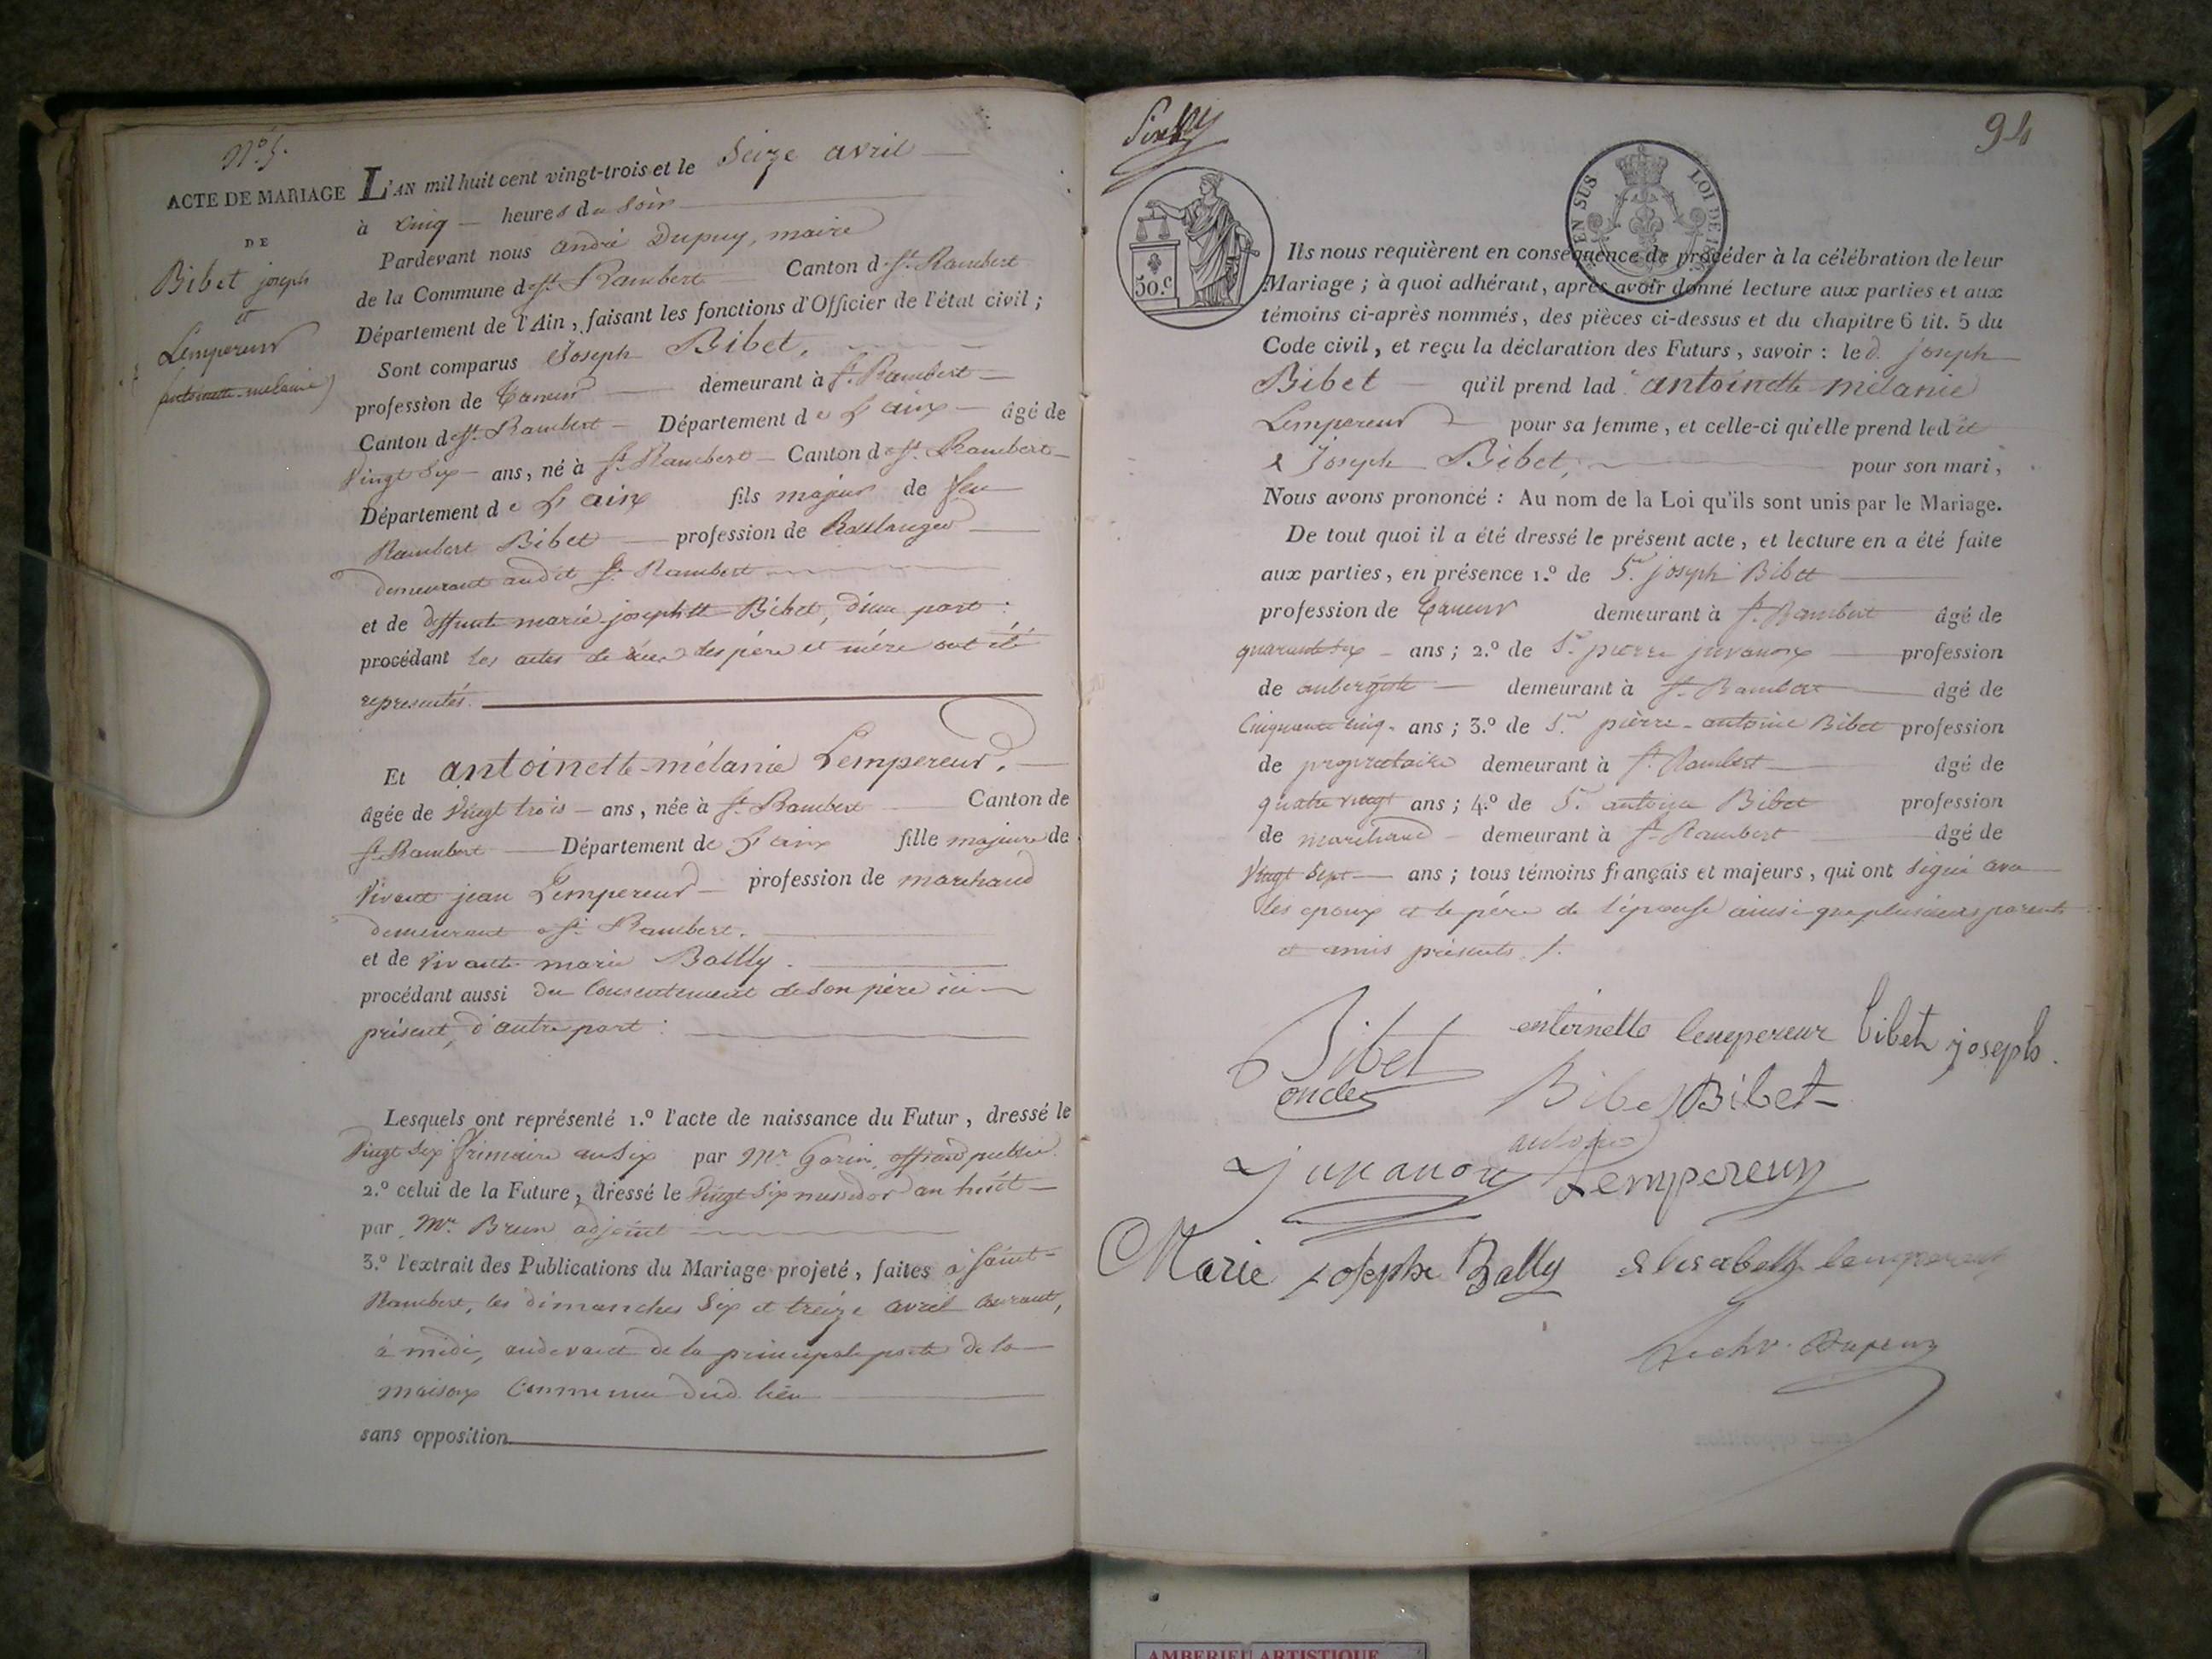 N.° 5.
ACTE DE MARIAGE
DE
Bibet joseph
et
Lempereur
antoinette-mélanie
L'AN mil huit cent vingt-trois et le Seize avril
à cinq heures du soir
Pardevant nous andré Dupuy, maire
de la Commune de St. Rambert Canton d. St. Rambert
Département de l'Ain, faisant les fonctions d'Officier de l'état civil ;
Sont comparus Joseph Bibet,
profession de taneur demeurant à St. Rambert
Canton de St. Rambert Département de L'ain âgé de
vingt six ans, né à St. Rambert Canton de St. Rambert
Département de L'ain fils majeur de feu
Rambert Bibet profession de Boulanger
demeurant audit St. Rambert
et de deffunte marie josephtte Bibet, d'une part :
procédant les actes de décès des père et mère ont été
représentés.
Et antoinette-mélanie Lempereur,
âgée de vingt trois ans, née à St. Rambert Canton de
St. Rambert Département de L'ain fille majeure de
vivant jean Lempereur profession de marchand
demeurant a St. Rambert.
et de vivante marie Bailly.
procédant aussi du consentement de son père ici
présent, d'autre part :
Lesquels ont représenté 1.° l'acte de naissance du Futur, dressé le
vingt six frimaire an six par Mr. Gorin, officier public.
2.° celui de la Future, dressé le vingt six messidor an huit
par Mr. Brun adjoint
3.° l'extrait des Publications du Mariage projeté, faites à Saint-
Rambert, les dimanches six et treize avril courant,
à midi, audevant de la principale porte de la
maison commune dud. lieu
sans opposition
94
50.c
EN SUS
LOI DE
Ils nous requièrent en conséquence de procéder à la célébration de leur
Mariage ; à quoi adhérant, après avoir donné lecture aux parties et aux
témoins ci-après nommés, des pièces ci-dessus et du chapitre 6 tit. 5 du
Code civil, et reçu la déclaration des Futurs, savoir : le d. joseph
Bibet qu'il prend lad. e antoinette mélanie
Lempereur pour sa femme, et celle-ci qu'elle prend ledit
Joseph Bibet, pour son mari,
Nous avons prononcé : Au nom de la Loi qu'ils sont unis par le Mariage.
De tout quoi il a été dressé le présent acte, et lecture en a été faite
aux parties, en présence 1.° de Sr. joseph Bibet
profession de taneur demeurant à St. Rambert âgé de
quarante six ans ; 2.° de Sr. pierre juvanon profession
de aubergiste demeurant à St. Rambert âgé de
cinquante cinq ans ; 3.° de Sr. pierre-antoine Bibet profession
de propriétaire demeurant à St. Rambert âgé de
quatre vingt ans ; 4.° de Sr. antoine Bibet profession
de marchand demeurant à St. Rambert âgé de
vingt sept ans ; tous témoins français et majeurs, qui ont signé avec
les epoux et le père de l'épouse ainsi que plusieurs parents
et amis présents /.
Bibet
oncle
entoinette lempereur bibet joseph
Bibet Bibet
antoine
juvanon Lempereur
Marie josephe Bally elisabeth lempereur
Dupuy
AMBERIEU ARTISTIQUE